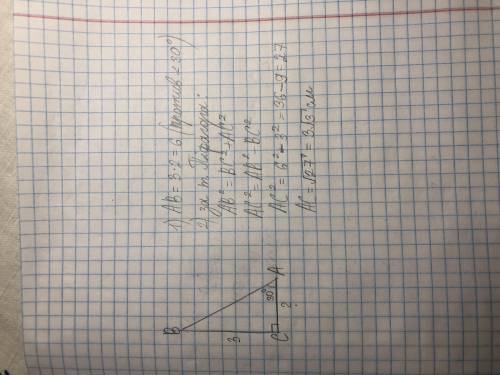 1) AB = 3·2 = 6 (против ∠30°)
2) за т. Піфагора:
AB² = BC² + AC²
AC² = AB² - BC²
AC² = 6² - 3² = 36 - 9 = 27
AC = √27 = 3√3 см
B
3
C
30°
A
?